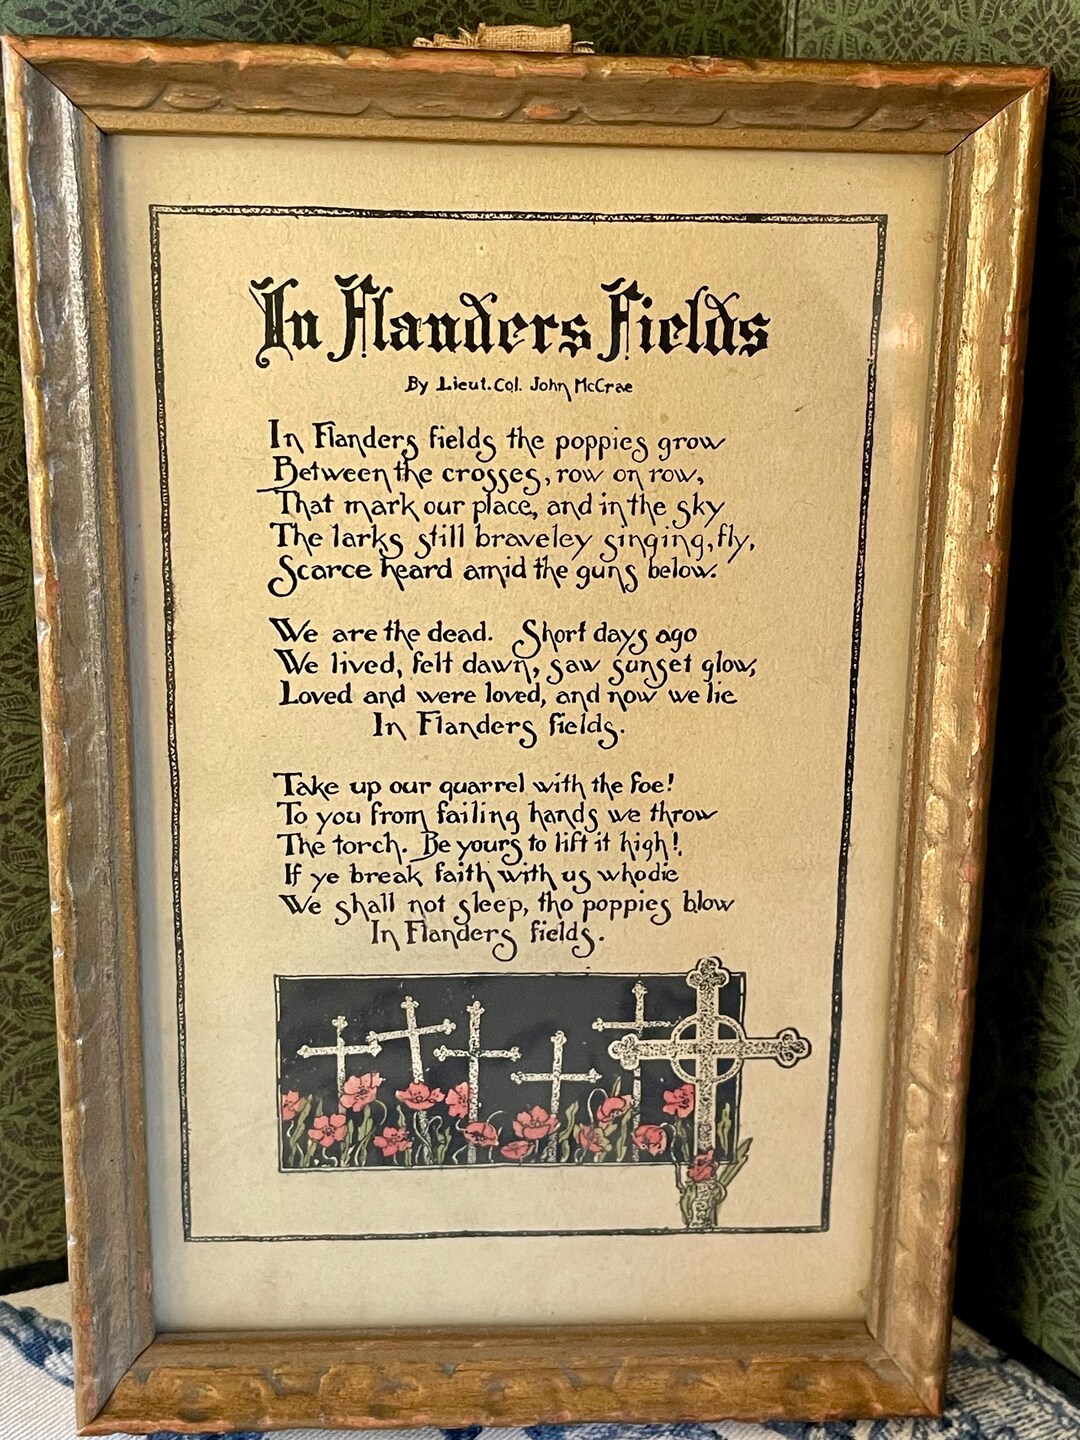 In Flanders Fields
By Lieut. Col. John McCrae
In Flanders fields the poppies grow
Between the crosses, row on row,
That mark our place, and in the sky
The larks still braveley singing, fly,
Scarce heard amid the guns below.
We are the dead. Short days ago
We lived, felt dawn, saw sunset glow,
Loved and were loved, and now we lie
In Flanders fields.
Take up our quarrel with the foe!
To you from failing hands we throw
The torch. Be yours to lift it high!
If ye break faith with us who die
We shall not sleep, tho poppies blow
In Flanders fields.